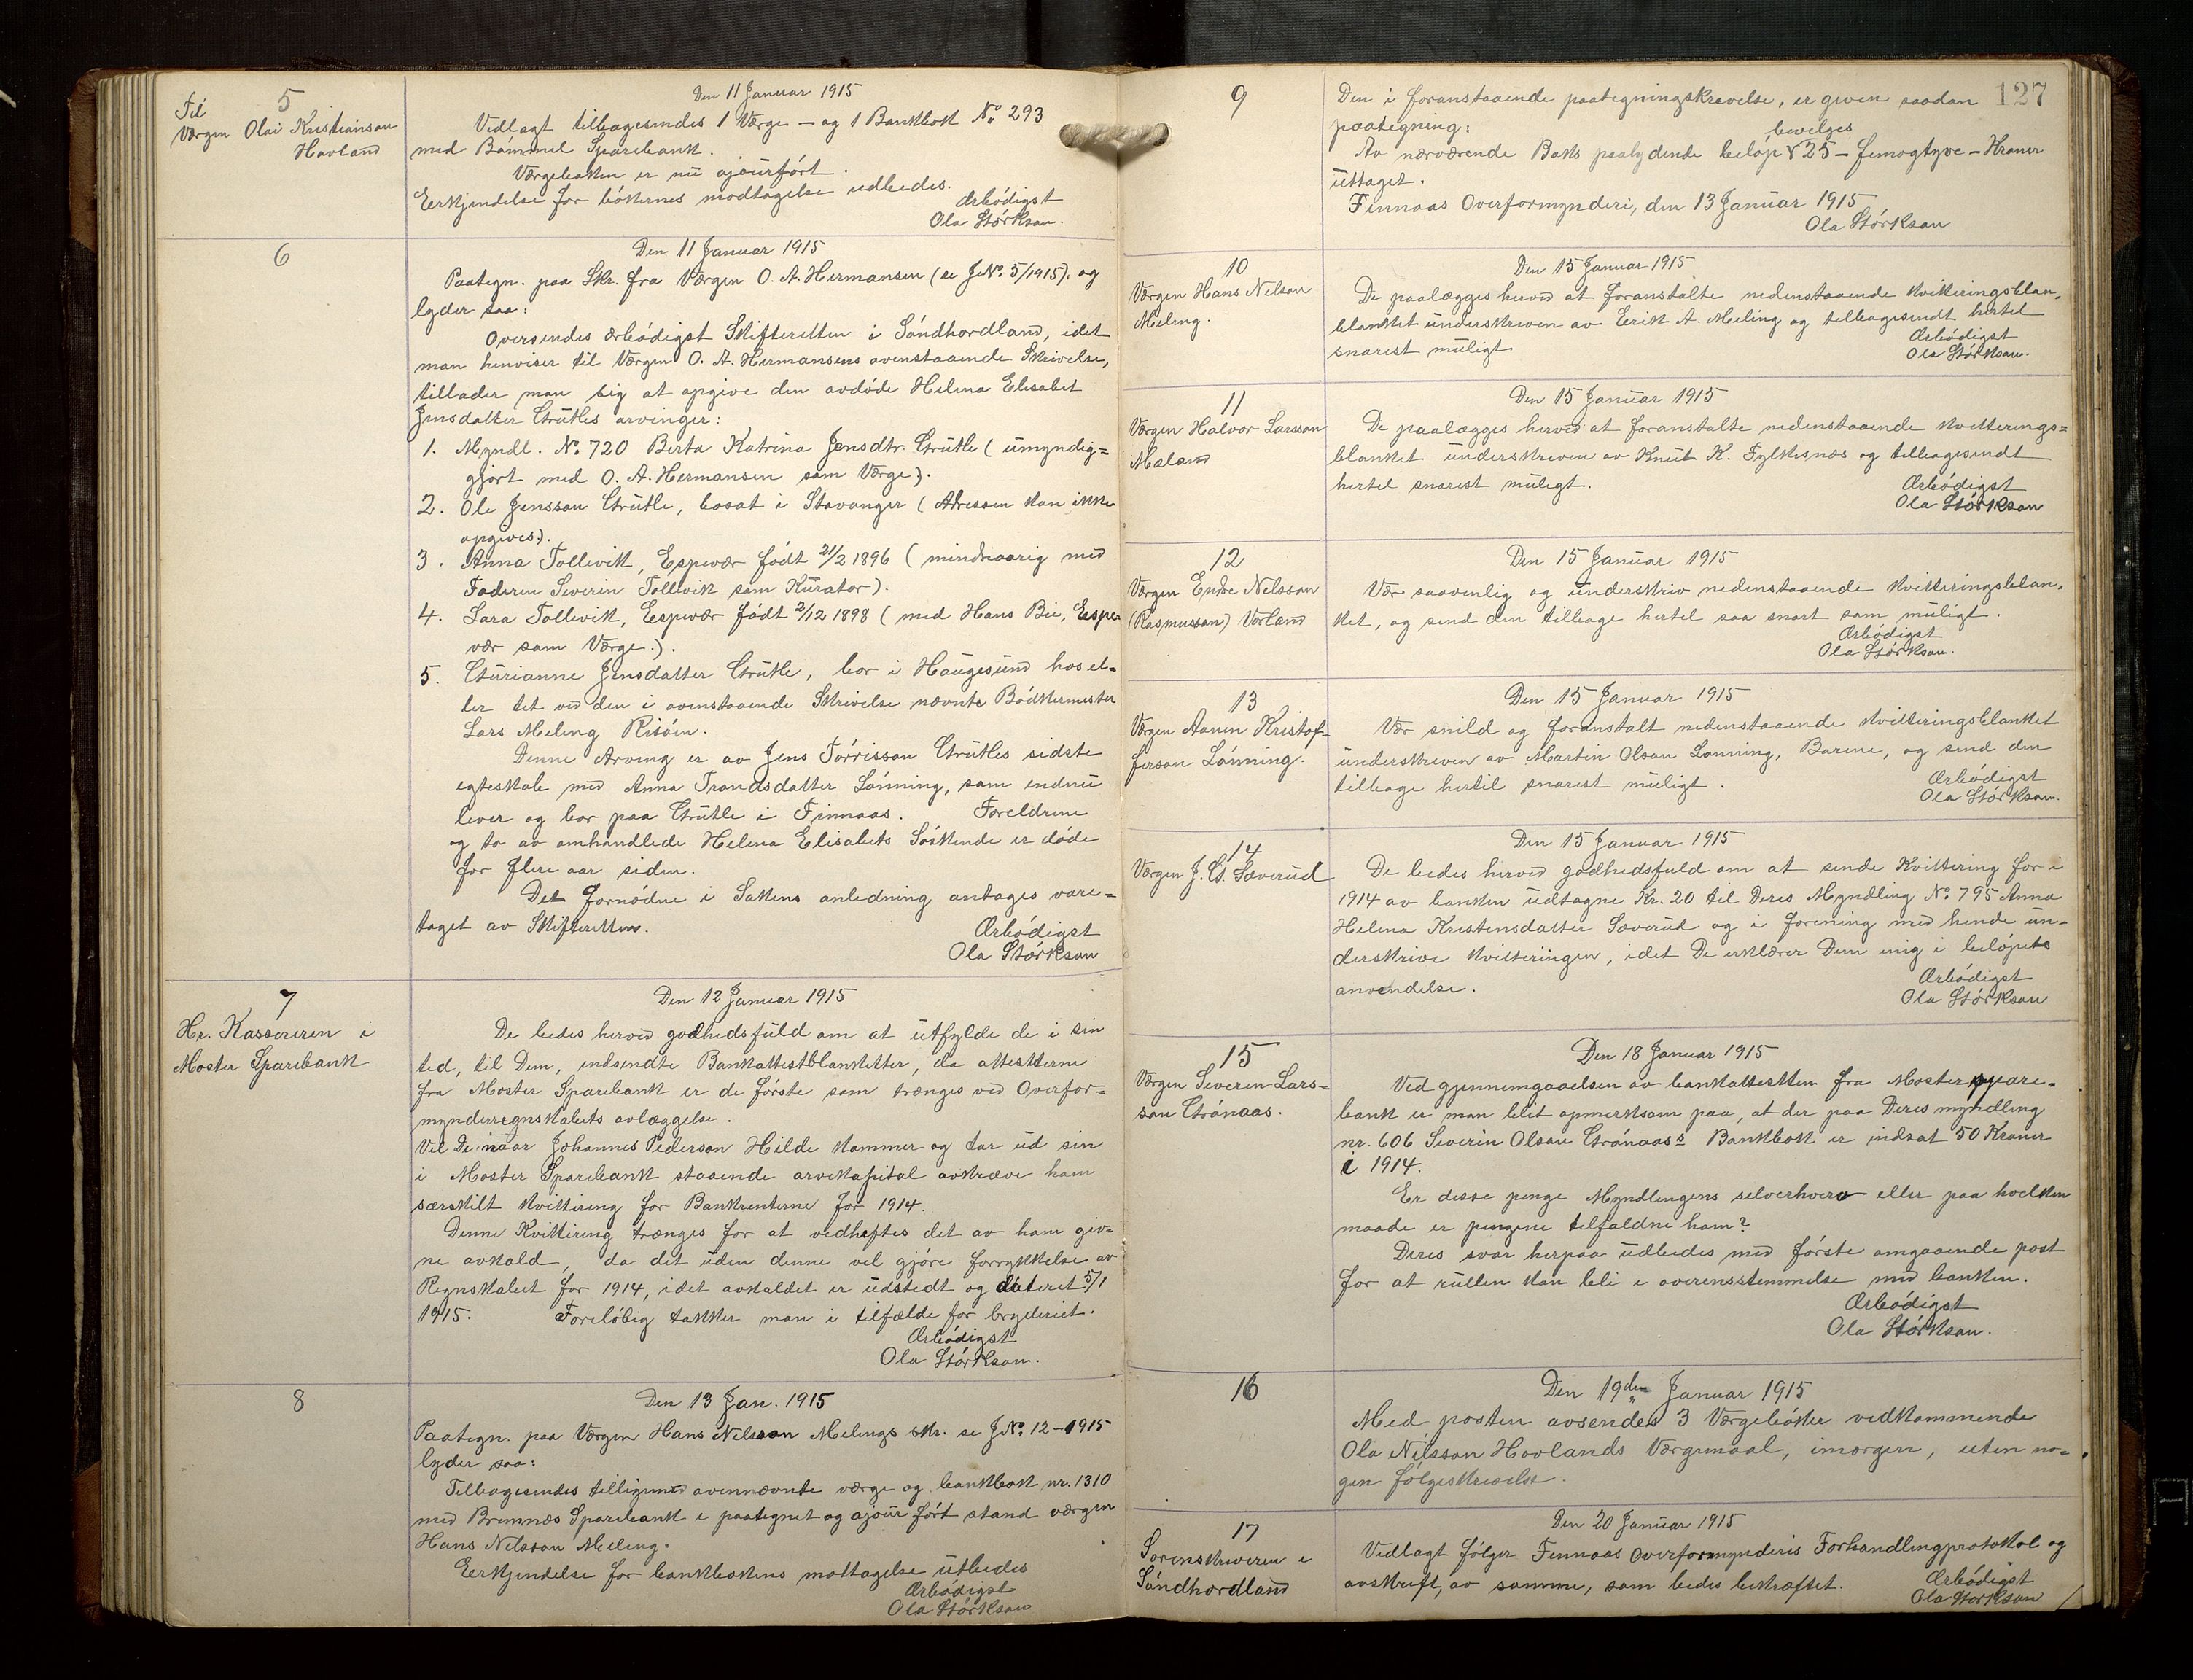 5
Til
Værgen Olai Kristianson
Havland
Den 11 Januar 1915
Vedlagt tilbagesendes 1 Værge - og 1 Bankbok No. 293
med Bømmel Sparebank.
Værgeboken er nu ajourført.
Eerkjendelse for bøkernes modtagelse udbedes.
Ærbødigst
Ola Størkson.
6
Den 11 Januar 1915
Paategn. paa Skr. fra Værgen O. A. Hermansen (se JNo. 5/1915). og
lyder saa:
Oversendes ærbødigst Skifteretten i Søndhordland, idet
man henviser til Værgen O. A. Hermansens ovenstaaende Skrivelse,
tillader man sig at opgive den avdøde Helena Elisabet
Jensdatter Grutles arvinger:
1. Myndl. No. 720 Berta Katrina Jensdtr. Grutle (umyndig=
gjort med O. A. Hermansen som Værge).
2. Ole Jensson Grutle, bosat i Stavanger (Adressen kan ikke
opgives).
3. Anna Tollevik, Espevær født 21/2 1896 (mindreaarig med
Faderen Severin Tollevik som Kurator).
4. Lara Tollevik, Espevær født 2/12 1898 (med Hans Bie, Eespe
vær som Værge.).
5. Gurianne Jensdatter Grutle, bor i Haugesund hos el-
ler tet ved den i ovenstaaende Skrivelse nævnte Bødkermester
Lars Meling Risøen.
Denne Arving er av Jens Tørrisson Grutles sidste
egteskab med Anna Trondsdatter Lønning, som endnu
lever og bor paa Grutle i Finnaas. Foreldrene
og to av omhandlede Helena Elisabets Søskende er døde
for flere aar siden.
Det fornødne i Sakens anledning antages vare=
taget av Skifteretten.
Ærbødigst
Ola Størkson
7
Hr. Kassereren i
Moster Sparebank
Den 12 Januar 1915
De bedes herved godhedsfuld om at utfylde de i sin
ted, til Dem, indsendte Bankattestblanketter, da attesterne
fra Moster Sparebank er de første som trænges ved Overfor=
mynderregnskabets avlæggelse.
Vil De naar Johannes Pederson Hilde kommer og tar ud sin
i Moster Sparebank staaende arvekapital avkræve ham
særskilt kvittering for Bankrenterne for 1914.
Denne Kvittering trænges for at vedheftes det av ham giv=
ne avkald, da det uden denne vil gjøre forrykkelse av
Regnskabet for 1914, idet avkaldet er udstedt og dateret 5/1
1915. Foreløbig takker man i tilfælde for bryderiet.
Ærbødigst
Ola Størkson.
8
Den 13 Jan. 1915
Paategn. paa Værgen Hans Nelsson Melings skr. se JNo. 12-1915
lyder saa:
Tilbagesendes tilligemed ovennævnte værge og bankbok nr. 1310
med Bremnæs Sparebank i paategnet og ajour ført stand værgen
Hans Nelsson Meling.
Eerkjendelse for bankbokens mottagelse utbedes
Ærbødigst
Ola Størkson
127
9
Den i foranstaaende paategningskrevelse, er given saadan
paategning:
bevilges
Av nærværende Boks paalydende beløp 25 - femogtyve - Kroner
uttaget.
Finnaas Overformynderi, den 13 Januar 1915
Ola Størkson
10
Værgen Hans Nelson
Meling.
Den 15 Januar 1915
De paalægges herved at foranstalte nedenstaaende kvitteringsblan-
blanket underskreven av Eerik A. Meling og tilbagesendt hertil
snarest muligt
Ærbødigst
Ola Størkson.
11
Værgen Halvor Larsson
Mæland
Den 15 Januar 1915
De paalægges herved at foranstalte nedenstaaende kvitterings=
blanket underskreven av Knut K. Fylkesnæs og tilbagesendt
hertil snarest muligt.
Ærbødigst
Ola Størkson
12
Værgen Endre Nelsson
(Rasmusson) Vorland
Den 15 Januar 1915
Vær saavenlig og underskriv nedenstaaende kvitteringsblan-
ket, og send den tilbage hertil saa snart som muligt.
Ærbødigst
Ola Størkson.
13
Værgen Aanen Kristof-
ferson Lønning.
Den 15 Januar 1915
Vær snild og foranstalt nedenstaaende kvitteringsblanket
underskreven av Martin Olson Lønning, Barene, og send den
tilbage hertil snarest muligt.
Ærbødigst
Ola Størkson.
14
Værgen J. G. Sæverud
Den 15 Januar 1915
De bedes herved godhedsfuld om at sende Kvittering for i
1914 av banken udtagne Kr. 20 til Deres Myndling No. 795 Anna
Helena Kristensdatter Sæverud og i forening med hende un-
derskrive kvitteringen, idet De erklærer Dem enig i beløpets
anvendelse.
Ærbødigst
Ola Størkson
15
Værgen Severin Lars=
son Grønaas.
Den 18 Januar 1915
Ved gjennemgaaelsen av bankattesten fra Moster spare-
bank er man blit opmerksom paa, at der paa Deres myndling
nr. 606 Severin Olson Grønaas's Bankbok er indsat 50 Kroner
i 1914.
Er disse penge Myndlingens selverhverv eller paa hvelken
maade er pengene tilfaldne ham?
Deres svar herpaa udbedes med første omgaaende post
for at rullen kan bli i overensstemmelse med banken.
Ærbødigst
Ola Størkson.
16
Den 19de Januar 1915
Med posten avsendes 3 Værgebøker vedkommende
Ola Nelsson Hovlands Værgemaal, imorgen, uten no-
gen følgeskrivelse.
17
Sorenskriveren i
Søndhordland
Den 20 Januar 1915
Vedlagt følger Finnaas overformynderis Forhandlingprotokol og
avskrift, av samme, som bedes bekræftet.
Ærbødigst
Ola Størkson